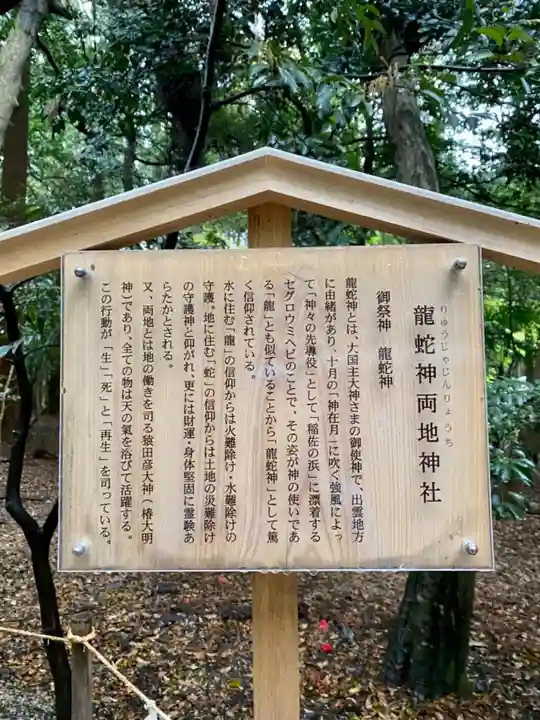 りゅうじゃじんりょうち
龍蛇神両地神社
御祭神　龍蛇神
龍蛇神とは、大国主大神さまの御使神で、出雲地方
に由緒があり、十月の「神在月」に吹く強風によっ
て「神々の先導役」として「稲佐の浜」に漂着する
セグロウミヘビのことで、その姿が神の使いであ
る「龍」とも似ていることから「龍蛇神」として篤
く信仰されている。
水に住む「龍」の信仰からは火難除け・水難除けの
守護。地に住む「蛇」の信仰からは土地の災難除け
の守護神と仰がれ、更には財運・身体堅固に霊験あ
らたかとされる。
又、両地とは地の働きを司る猿田彦大神（椿大明
神）であり、全ての物は天の氣を浴びて活躍する。
この行動が「生」「死」と「再生」を司っている。